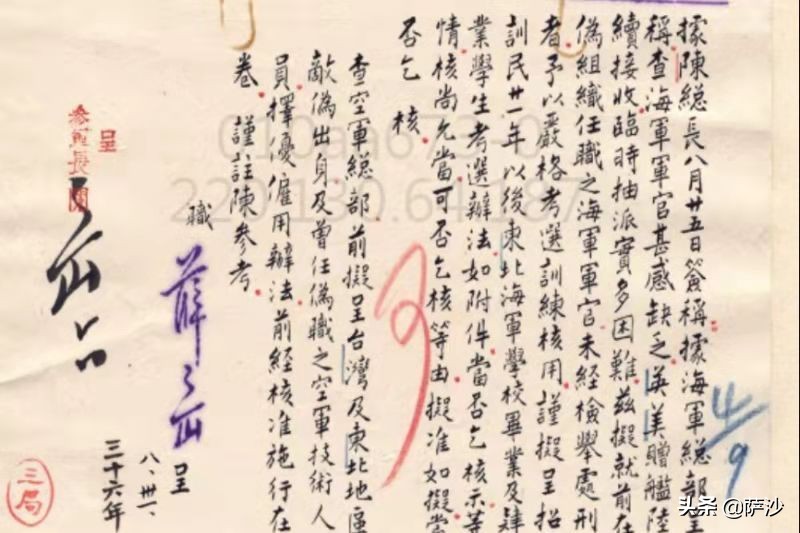 據陳總長八月廿五日簽稱據海軍總部呈
稱查海軍軍官甚感缺乏英美贈艦陸
續接收臨時抽派實多困難茲擬就前在
偽組織任職之海軍軍官未經檢舉處刑
者予以嚴格考選訓練核用謹擬呈招
訓民廿一年以後東北海軍學校畢業及肄
業學生考選辦法如附件當否乞核示等
情核尚允當可否乞核等由擬准如擬當
否乞 核
查空軍總部前擬呈台灣及東北地區
敵偽出身及曾任偽職之空軍技術人
員擇優僱用辦法前經核准施行在
卷 謹註陳參考
職 薛岳 呈
八、卅一、
三十六年
呈
三局
4/9
220.130.64.187
头条 @萨沙